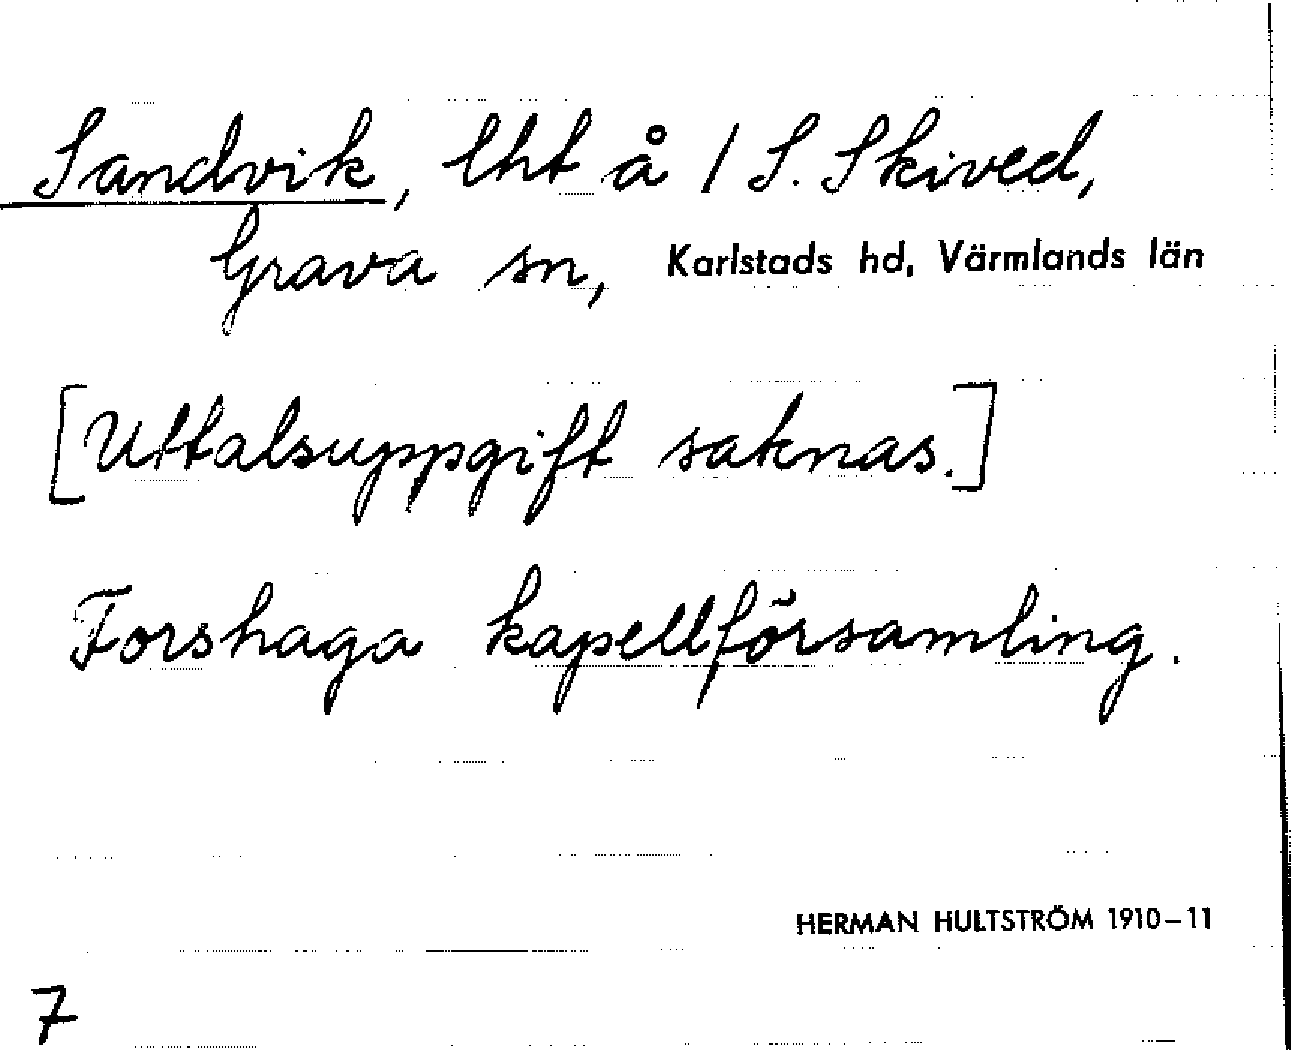 Sandvik, lht å 1 S. Skived,
Grava sn, Karlstads hd, Värmlands län
[Uttalsuppgift saknas.]
Forshaga kapellförsamling.
HERMAN HULTSTRÖM 1910–11
7